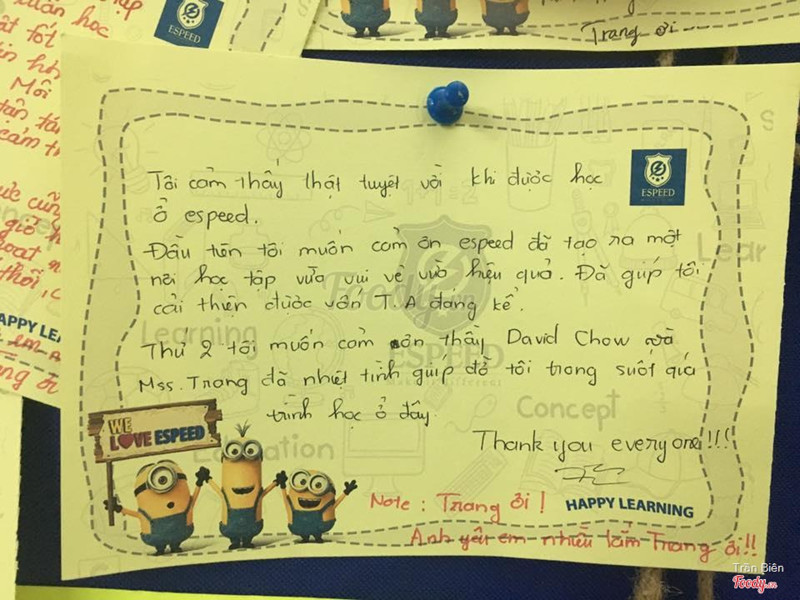 Trang ơi
ESPEED
Tôi cảm thấy thật tuyệt vời khi được học
ở espeed.
ESPEED
Đầu tiên tôi muốn cảm ơn espeed đã tạo ra một
nơi học tập vừa vui vẻ vừa hiệu quả. Đã giúp tôi
cải thiện được vốn T.A đáng kể.
Thứ 2 tôi muốn cảm ơn thầy David Chow và
Mss. Trang đã nhiệt tình giúp đỡ tôi trong suốt quá
trình học ở đây.
Thank you everyone!!!
Learning
ESPEED
Concept
WE
LOVE ESPEED
Note : Trang ơi !
HAPPY LEARNING
Anh yêu em nhiều lắm Trang ơi!!
Trần Biên
Foody.vn